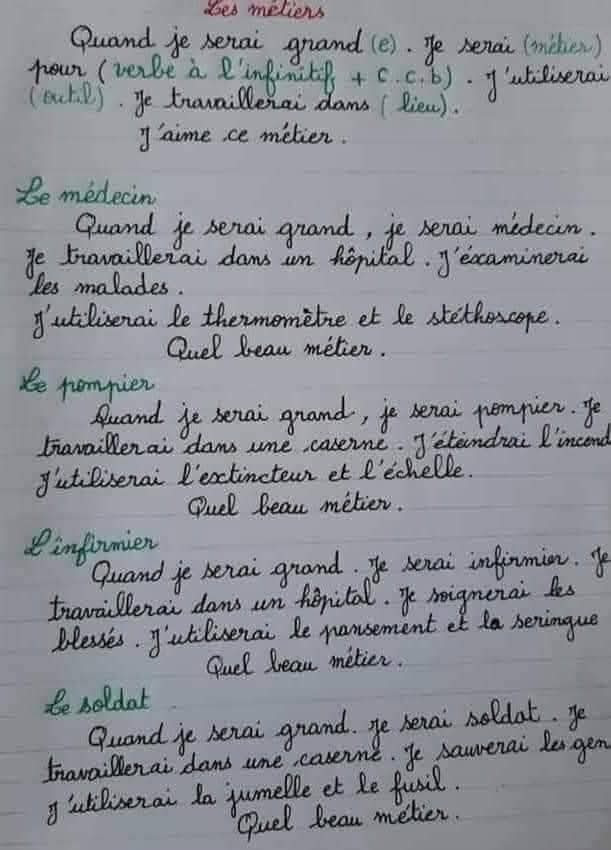 Les métiers
Quand je serai grand (e). Je serai (métier)
pour (verbe à l'infinitif + C.c.b). J'utiliserai
(outil). Je travaillerai dans (lieu).
J'aime ce métier.
Le médecin
Quand je serai grand, je serai médecin.
Je travaillerai dans un hôpital. J'éxaminerai
les malades.
J'utiliserai le thermomètre et le stéthoscope.
Quel beau métier.
Le pompier
Quand je serai grand, je serai pompier. Je
travaillerai dans une caserne. J'éteindrai l'incend
J'utiliserai l'exctincteur et l'échelle.
Quel beau métier.
L'infirmier
Quand je serai grand. Je serai infirmier. Je
travaillerai dans un hôpital. Je soignerai les
blessés. J'utiliserai le pansement et la seringue
Quel beau métier.
Le soldat
Quand je serai grand. Je serai soldat. Je
travaillerai dans une caserne. Je sauverai les gen
J'utiliserai la jumelle et le fusil.
Quel beau métier.